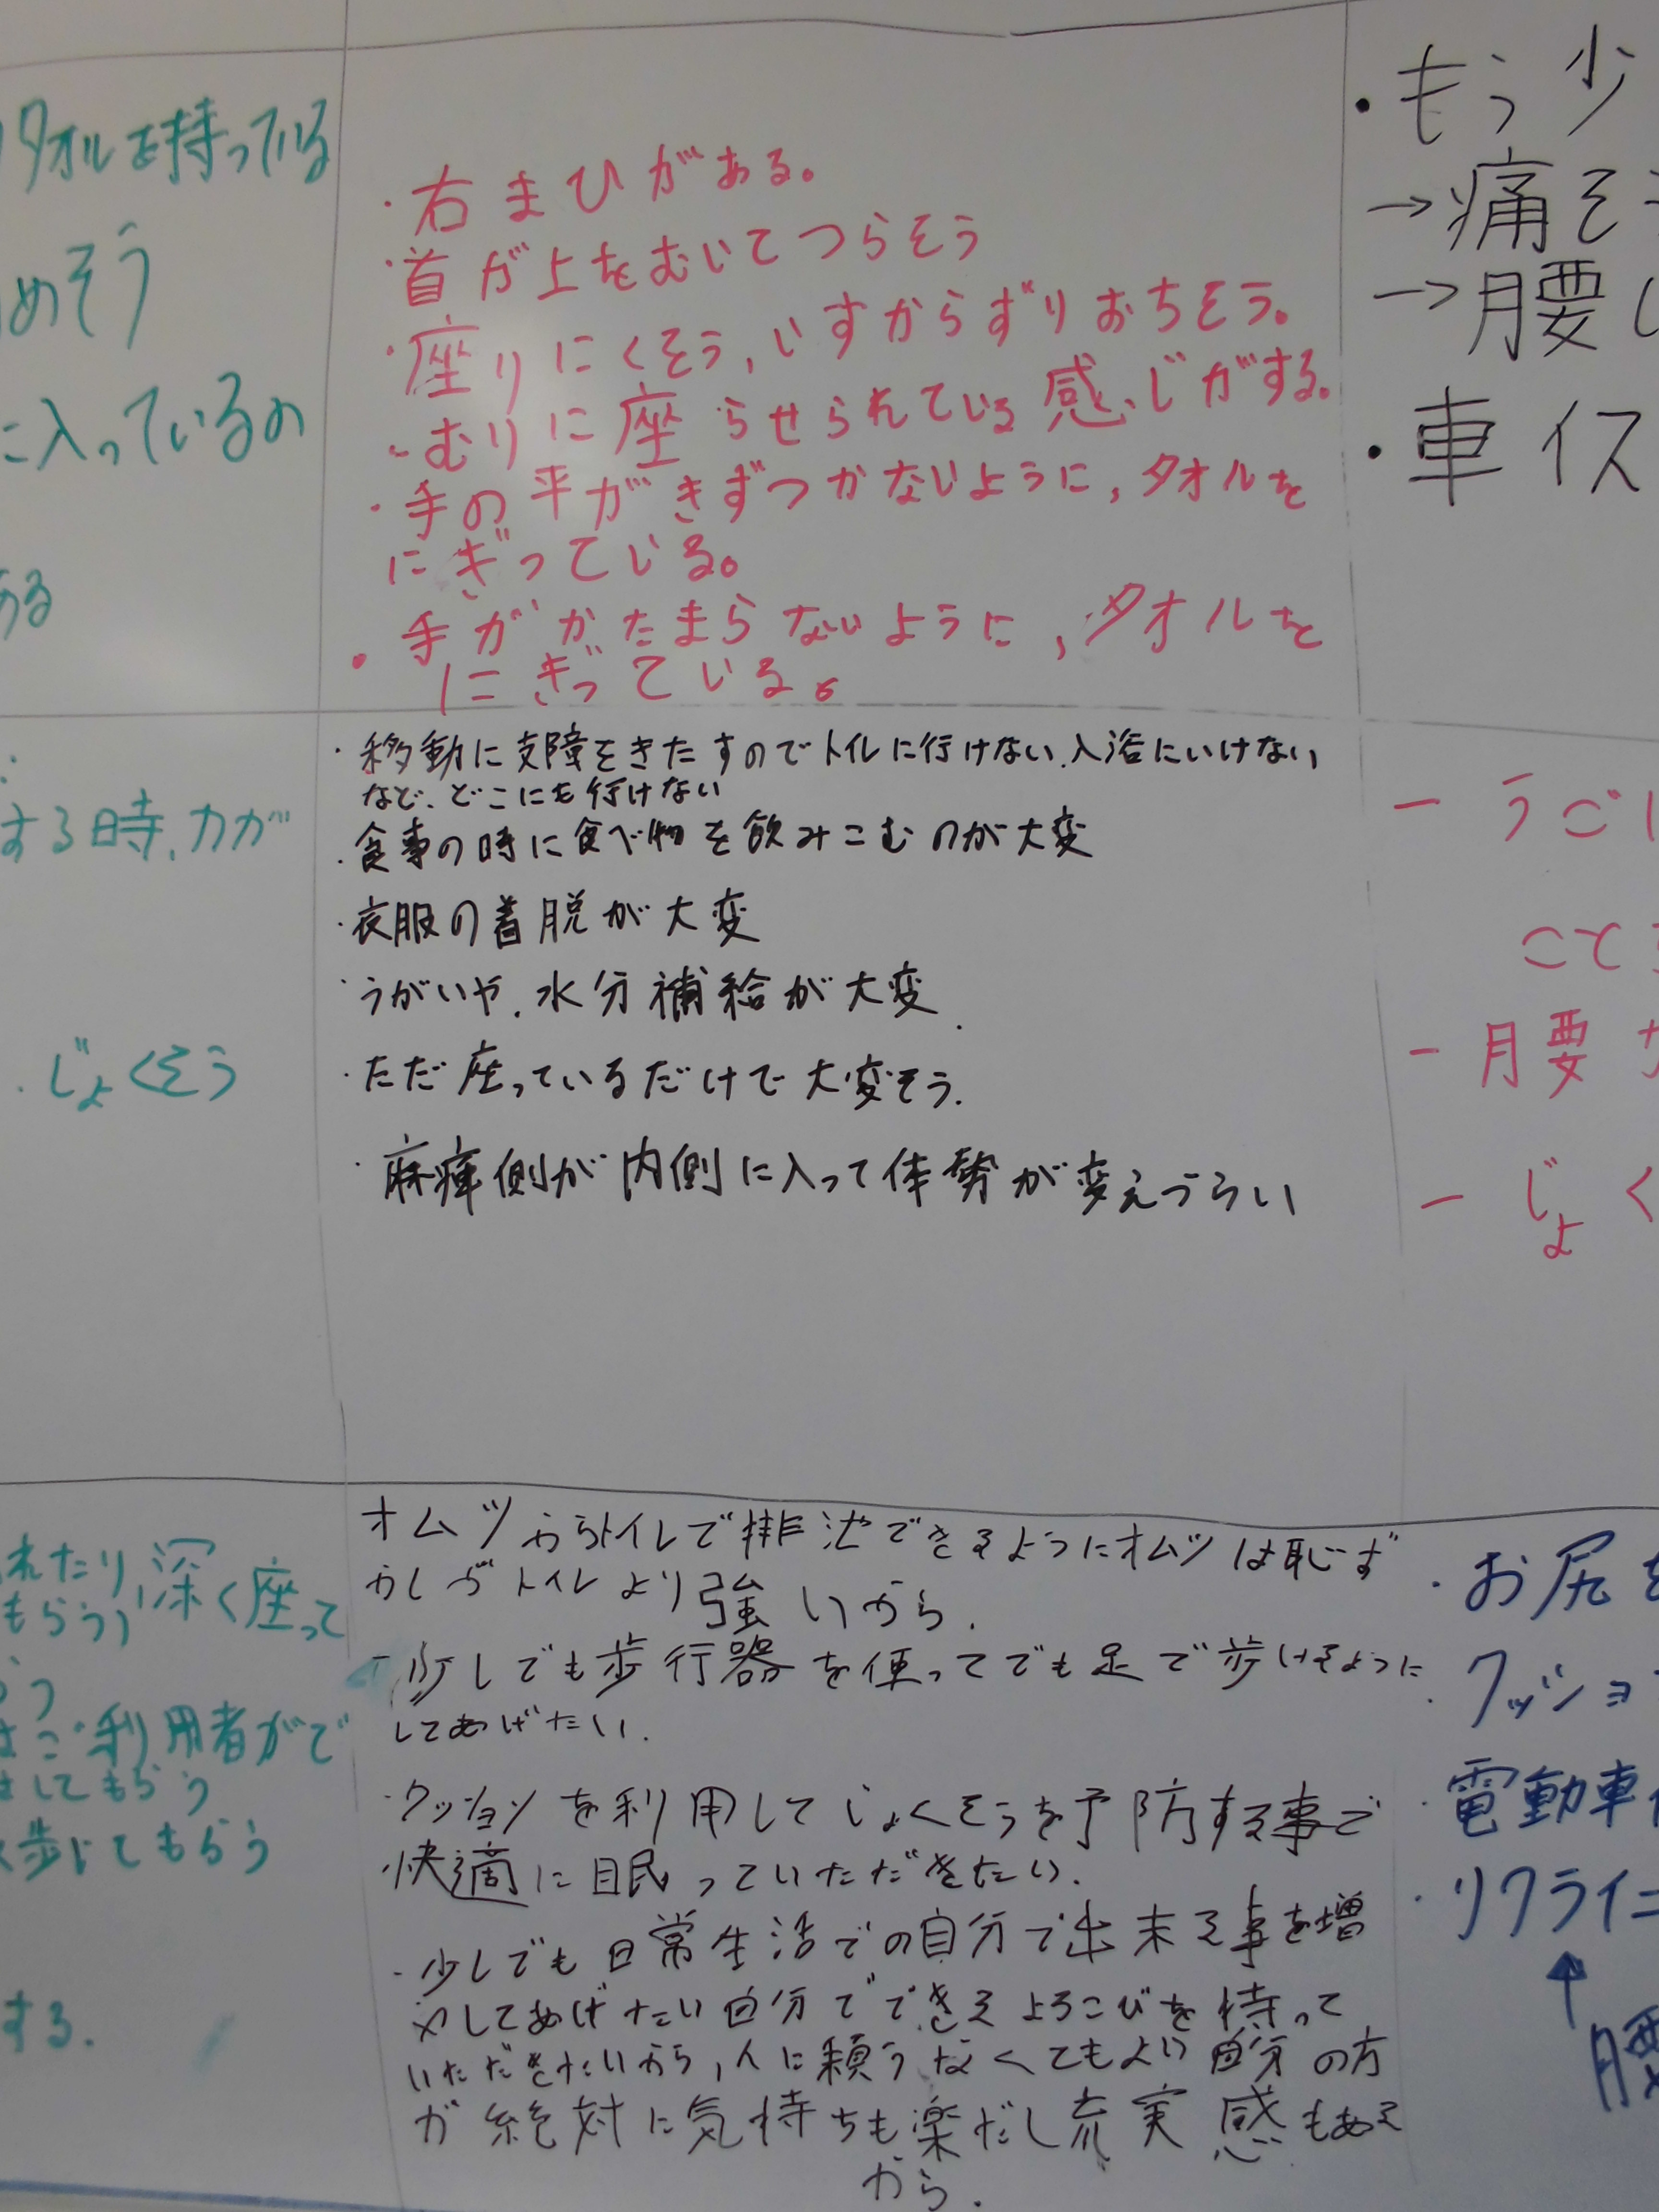 タオルを持っている
めそう
に入っているの
ある
・右まひがある。
・首が上をむいてつらそう
・座りにくそう、いすからずりおちそう。
・むりに座らせられている感じがする。
・手の平がきずつかないように、タオルを
にぎっている。
・手がかたまらないように、タオルを
にぎっている。
・もう少
→痛そ
→腰
・車イス
する時、力が
・じょくそう
・移動に支障をきたすのでトイレに行けない、入浴にいけない
など、どこにも行けない
・食事の時に食べ物を飲みこむのが大変
・衣服の着脱が大変
・うがいや、水分補給が大変
・ただ座っているだけで大変そう.
・麻痺側が内側に入って体勢が変えづらい
ーうご
こと
ー腰
ーじょく
れたり、深く座って
もらう)
利用者がで
してもらう
歩いてもらう
する.
オムツからトイレで排泄できるようにオムツは恥ず
かしがトイレより強いから.
・少しでも歩行器を使ってでも足で歩けるように
してあげたい.
・クッションを利用してじょくそうを予防する事で
快適に眠っていただきたい.
・少しでも日常生活での自分で出来る事を増
やしてあげたい自分でできるよろこびを持って
いただきたいから,人に頼うなくてもよい自分の方
が絶対に気持ちも楽だし充実感もある
から.
・お尻を
・クッショ
・電動車
・リクライニ
↑
腰